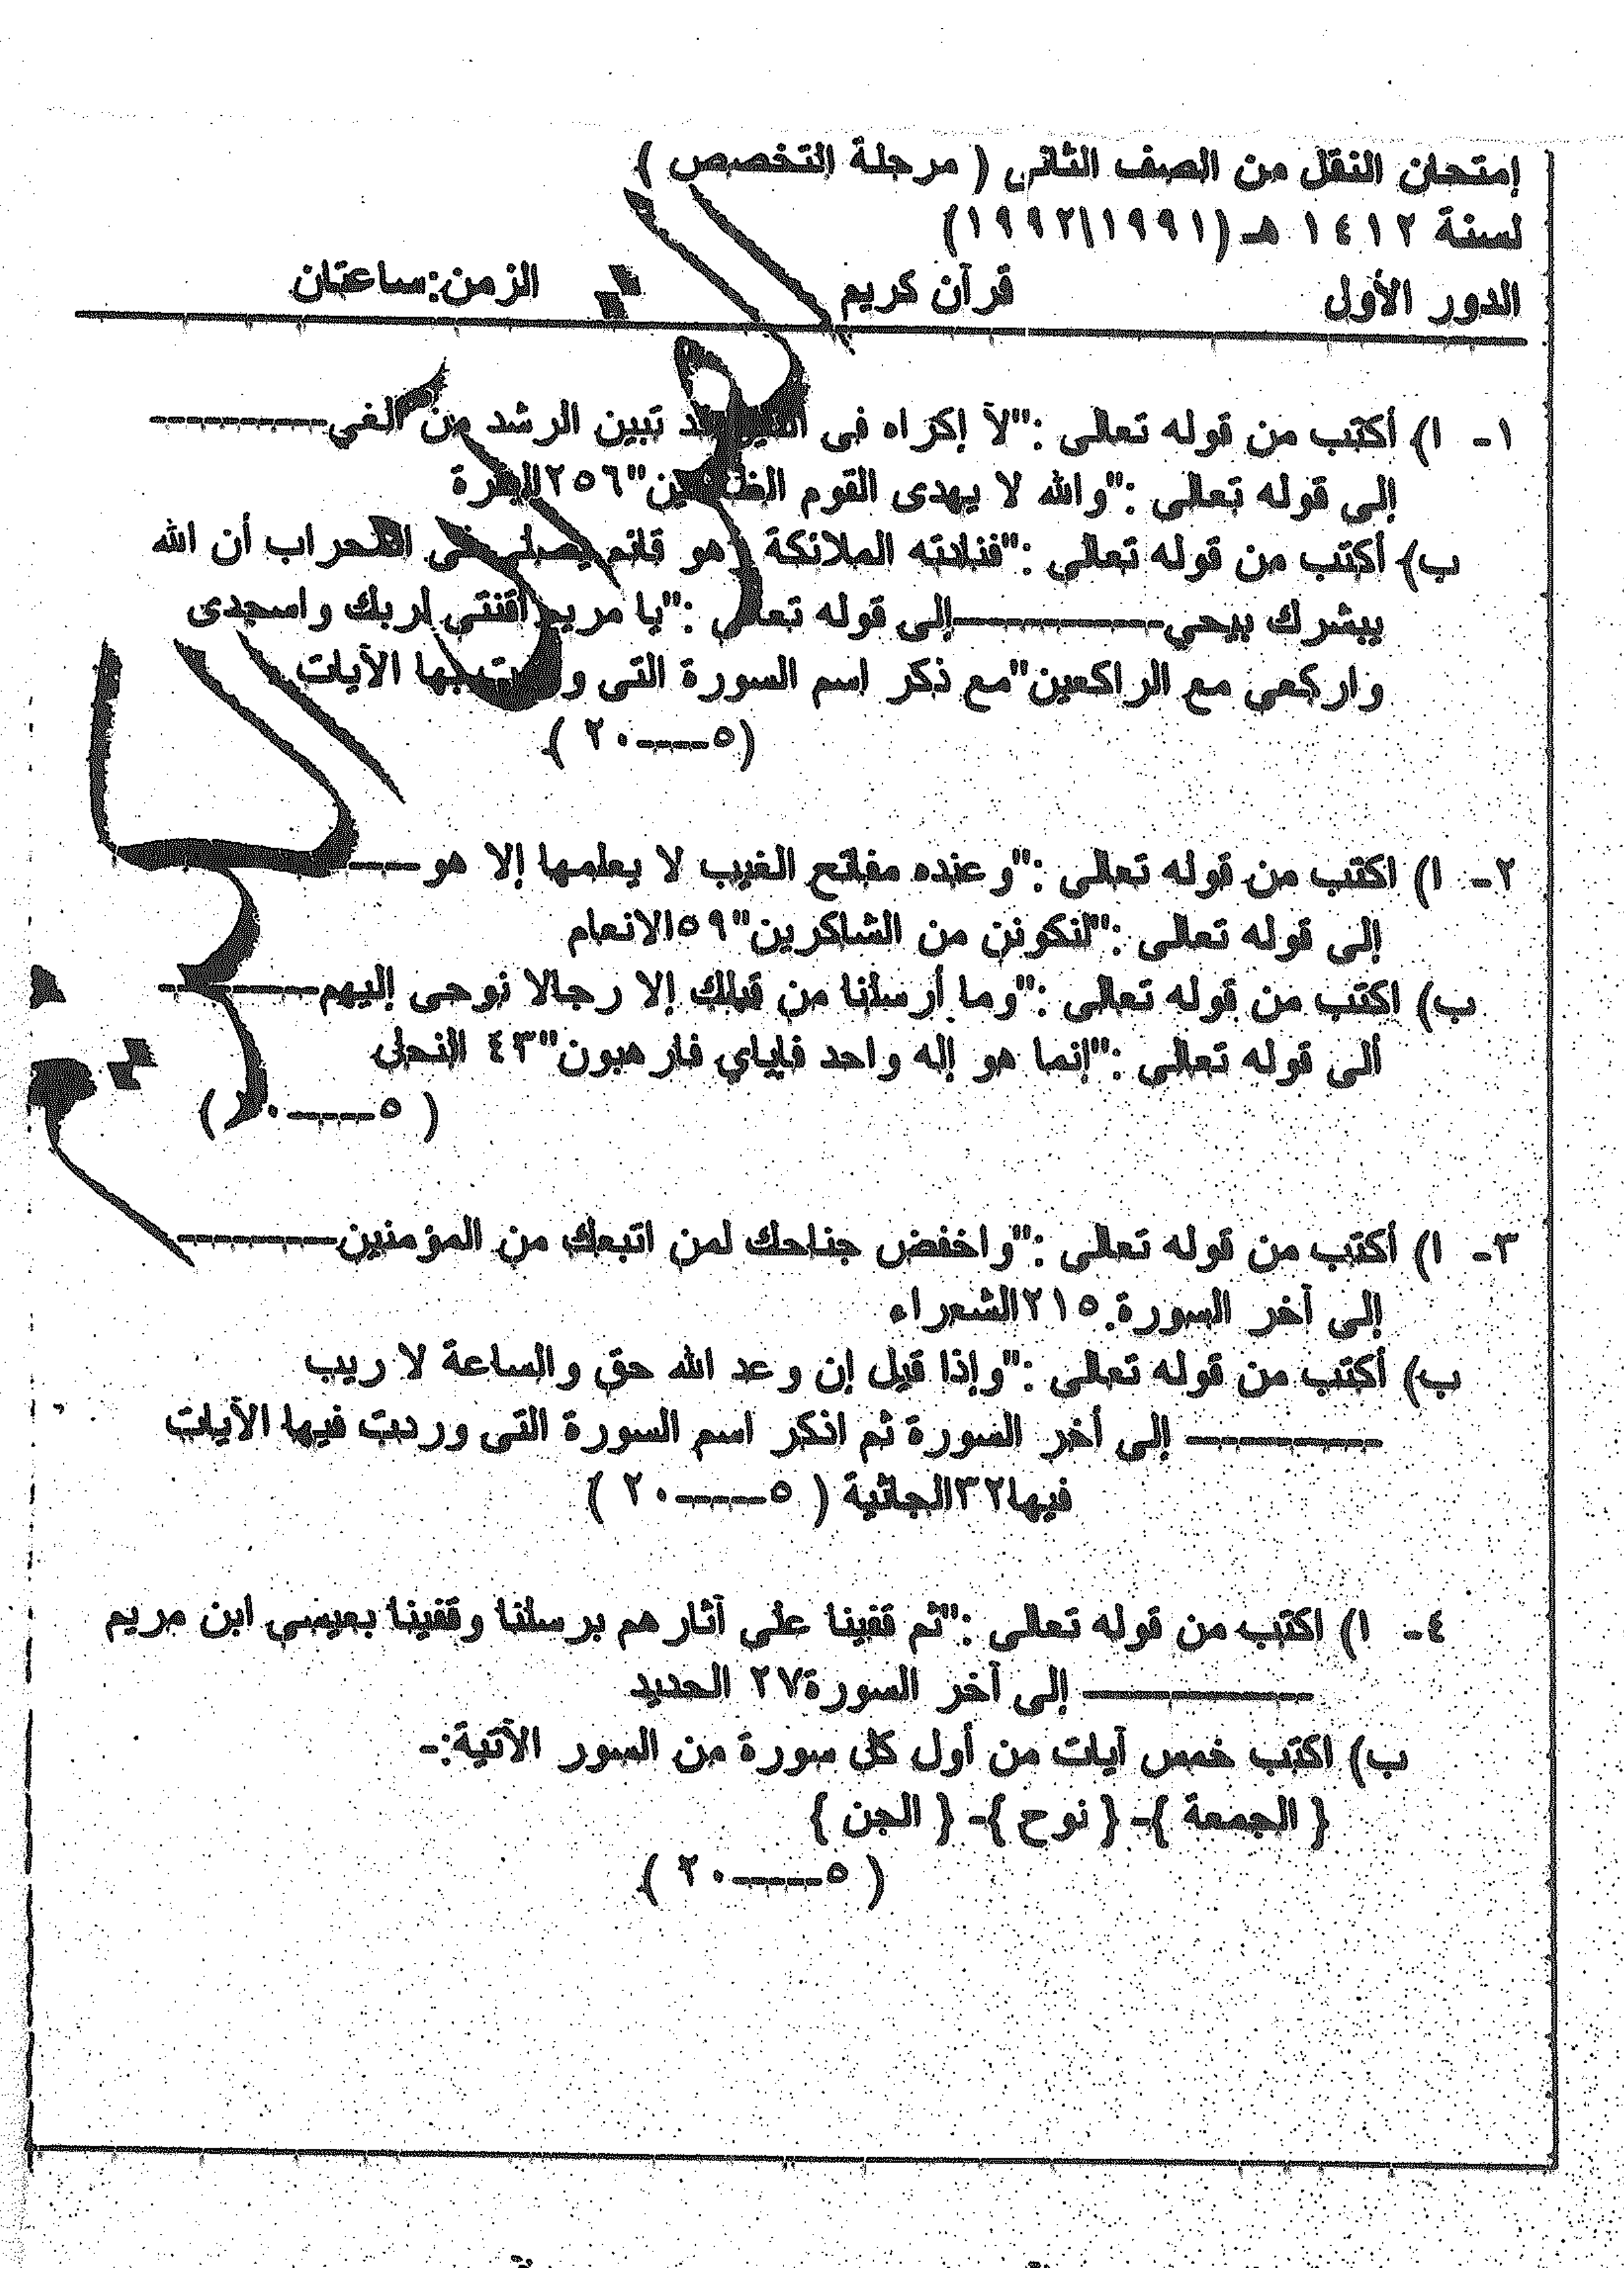 إمتحان النقل من الصف الثانى ( مرحلة التخصص )
لسنة ١٤١٢ هـ (١٩٩١\١٩٩٢)
الدور الأول قرآن كريم الزمن:ساعتان
١- ا) أكتب من قوله تعالى :"لآ إكراه فى تبين الرشد من الغي---------
إلى قوله تعالى :"والله لا يهدى القوم "٢٥٦البقرة
ب) أكتب من قوله تعالى :"فنادته الملائكة وهو قائم يصلى فى المحراب أن الله
يبشرك بيحي----------إلى قوله تعالى :"يا مريم اقنتي لربك واسجدى
واركعى مع الراكعين"مع ذكر اسم السورة التى بها الآيات
(٥----٢٠ )
٢- ا) اكتب من قوله تعالى :"وعنده مفاتح الغيب لا يعلمها إلا هو----
إلى قوله تعالى :"لنكونن من الشاكرين"٥٩الانعام
ب) اكتب من قوله تعالى :"وما أرسلنا من قبلك إلا رجالا نوحى إليهم--------
ألى قوله تعالى :"إنما هو إله واحد فاياي فارهبون"٤٣ النحل
( ٥-----٢٠ )
٣- ا) أكتب من قوله تعالى :"واخفض جناحك لمن اتبعك من المؤمنين---------
إلى آخر السورة.٢١٥الشعراء
ب) أكتب من قوله تعالى :"وإذا قيل إن وعد الله حق والساعة لا ريب
---------- إلى أخر السورة ثم اذكر اسم السورة التى وردت فيها الآيات
فيها٣٢الجاثية ( ٥-----٢٠ )
٤- ا) اكتب من قوله تعالى :"ثم قفينا علي آثارهم برسلنا وقفينا بعيسي ابن مريم
----------- إلى آخر السورة٢٧ الحديد
ب) اكتب خمس آيات من أول كل سورة من السور الآتية:-
{ الجمعة }- { نوح }- { الجن }
( ٥-----٢٠ )